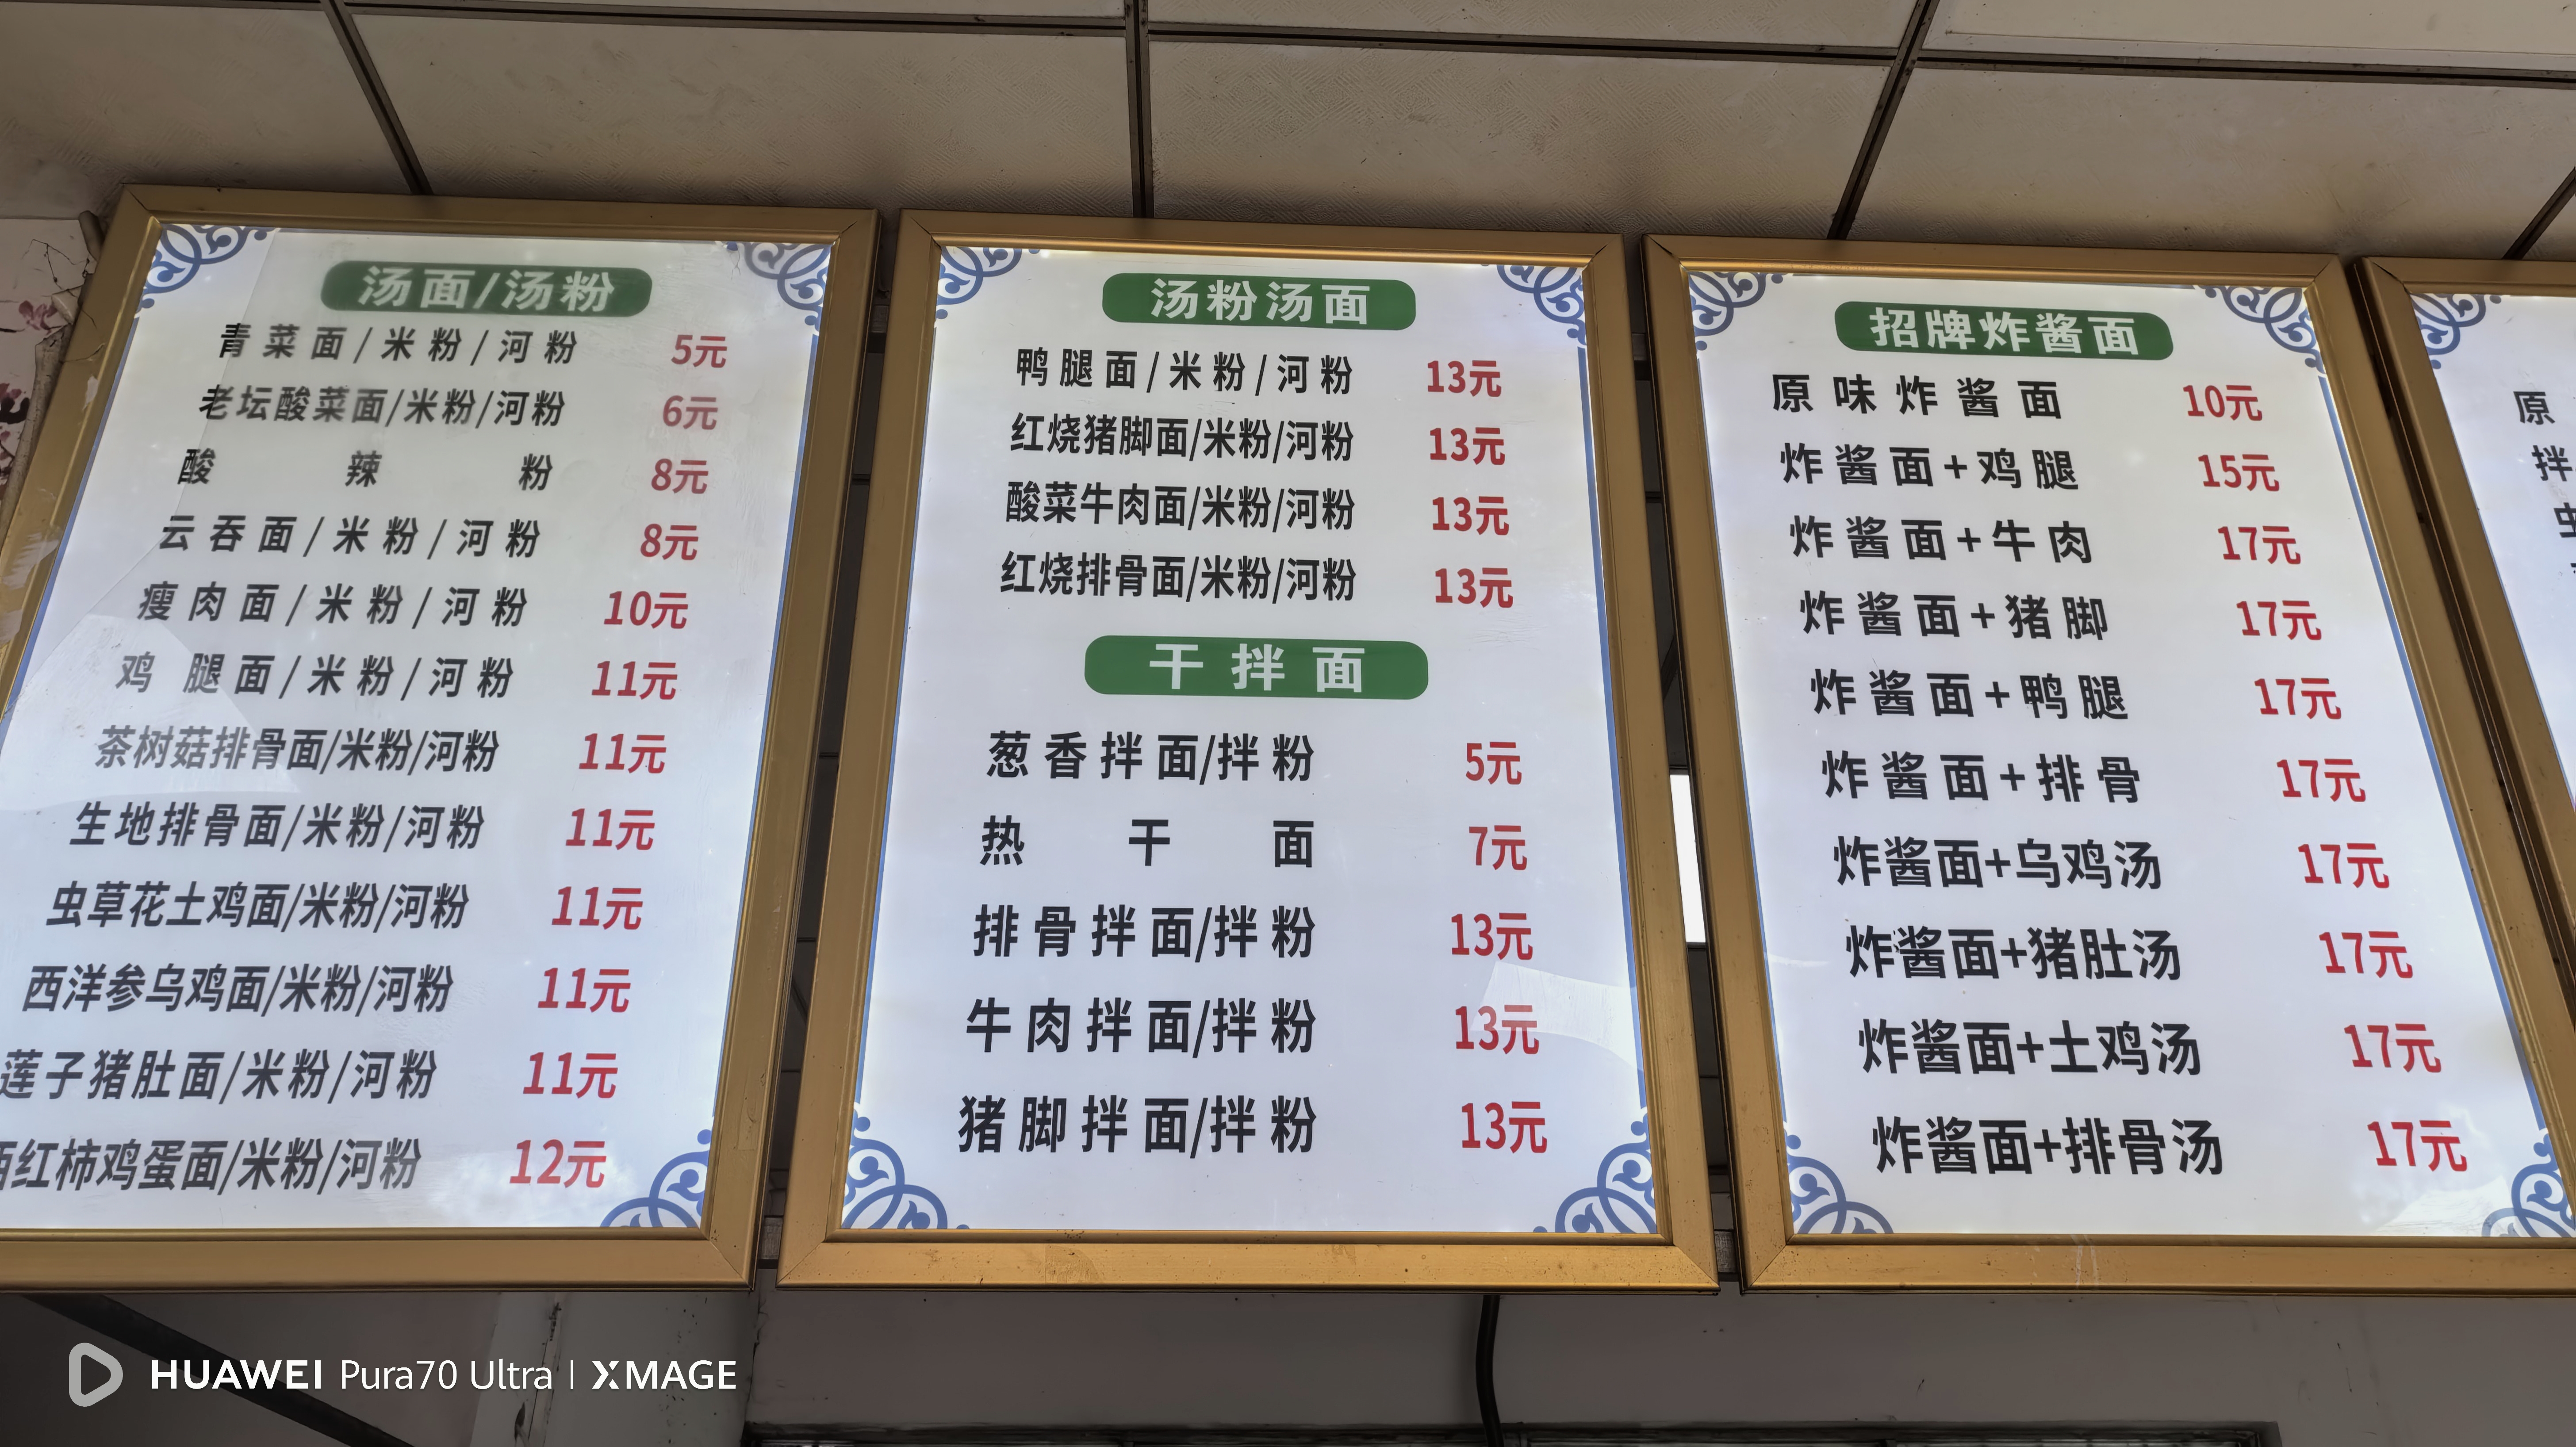 汤面/汤粉
青菜面/米粉/河粉 5元
老坛酸菜面/米粉/河粉 6元
酸辣粉 8元
云吞面/米粉/河粉 8元
瘦肉面/米粉/河粉 10元
鸡腿面/米粉/河粉 11元
茶树菇排骨面/米粉/河粉 11元
生地排骨面/米粉/河粉 11元
虫草花土鸡面/米粉/河粉 11元
西洋参乌鸡面/米粉/河粉 11元
莲子猪肚面/米粉/河粉 11元
西红柿鸡蛋面/米粉/河粉 12元
汤粉汤面
鸭腿面/米粉/河粉 13元
红烧猪脚面/米粉/河粉 13元
酸菜牛肉面/米粉/河粉 13元
红烧排骨面/米粉/河粉 13元
干拌面
葱香拌面/拌粉 5元
热干面 7元
排骨拌面/拌粉 13元
牛肉拌面/拌粉 13元
猪脚拌面/拌粉 13元
招牌炸酱面
原味炸酱面 10元
炸酱面+鸡腿 15元
炸酱面+牛肉 17元
炸酱面+猪脚 17元
炸酱面+鸭腿 17元
炸酱面+排骨 17元
炸酱面+乌鸡汤 17元
炸酱面+猪肚汤 17元
炸酱面+土鸡汤 17元
炸酱面+排骨汤 17元
原
拌
HUAWEI Pura70 Ultra | XMAGE